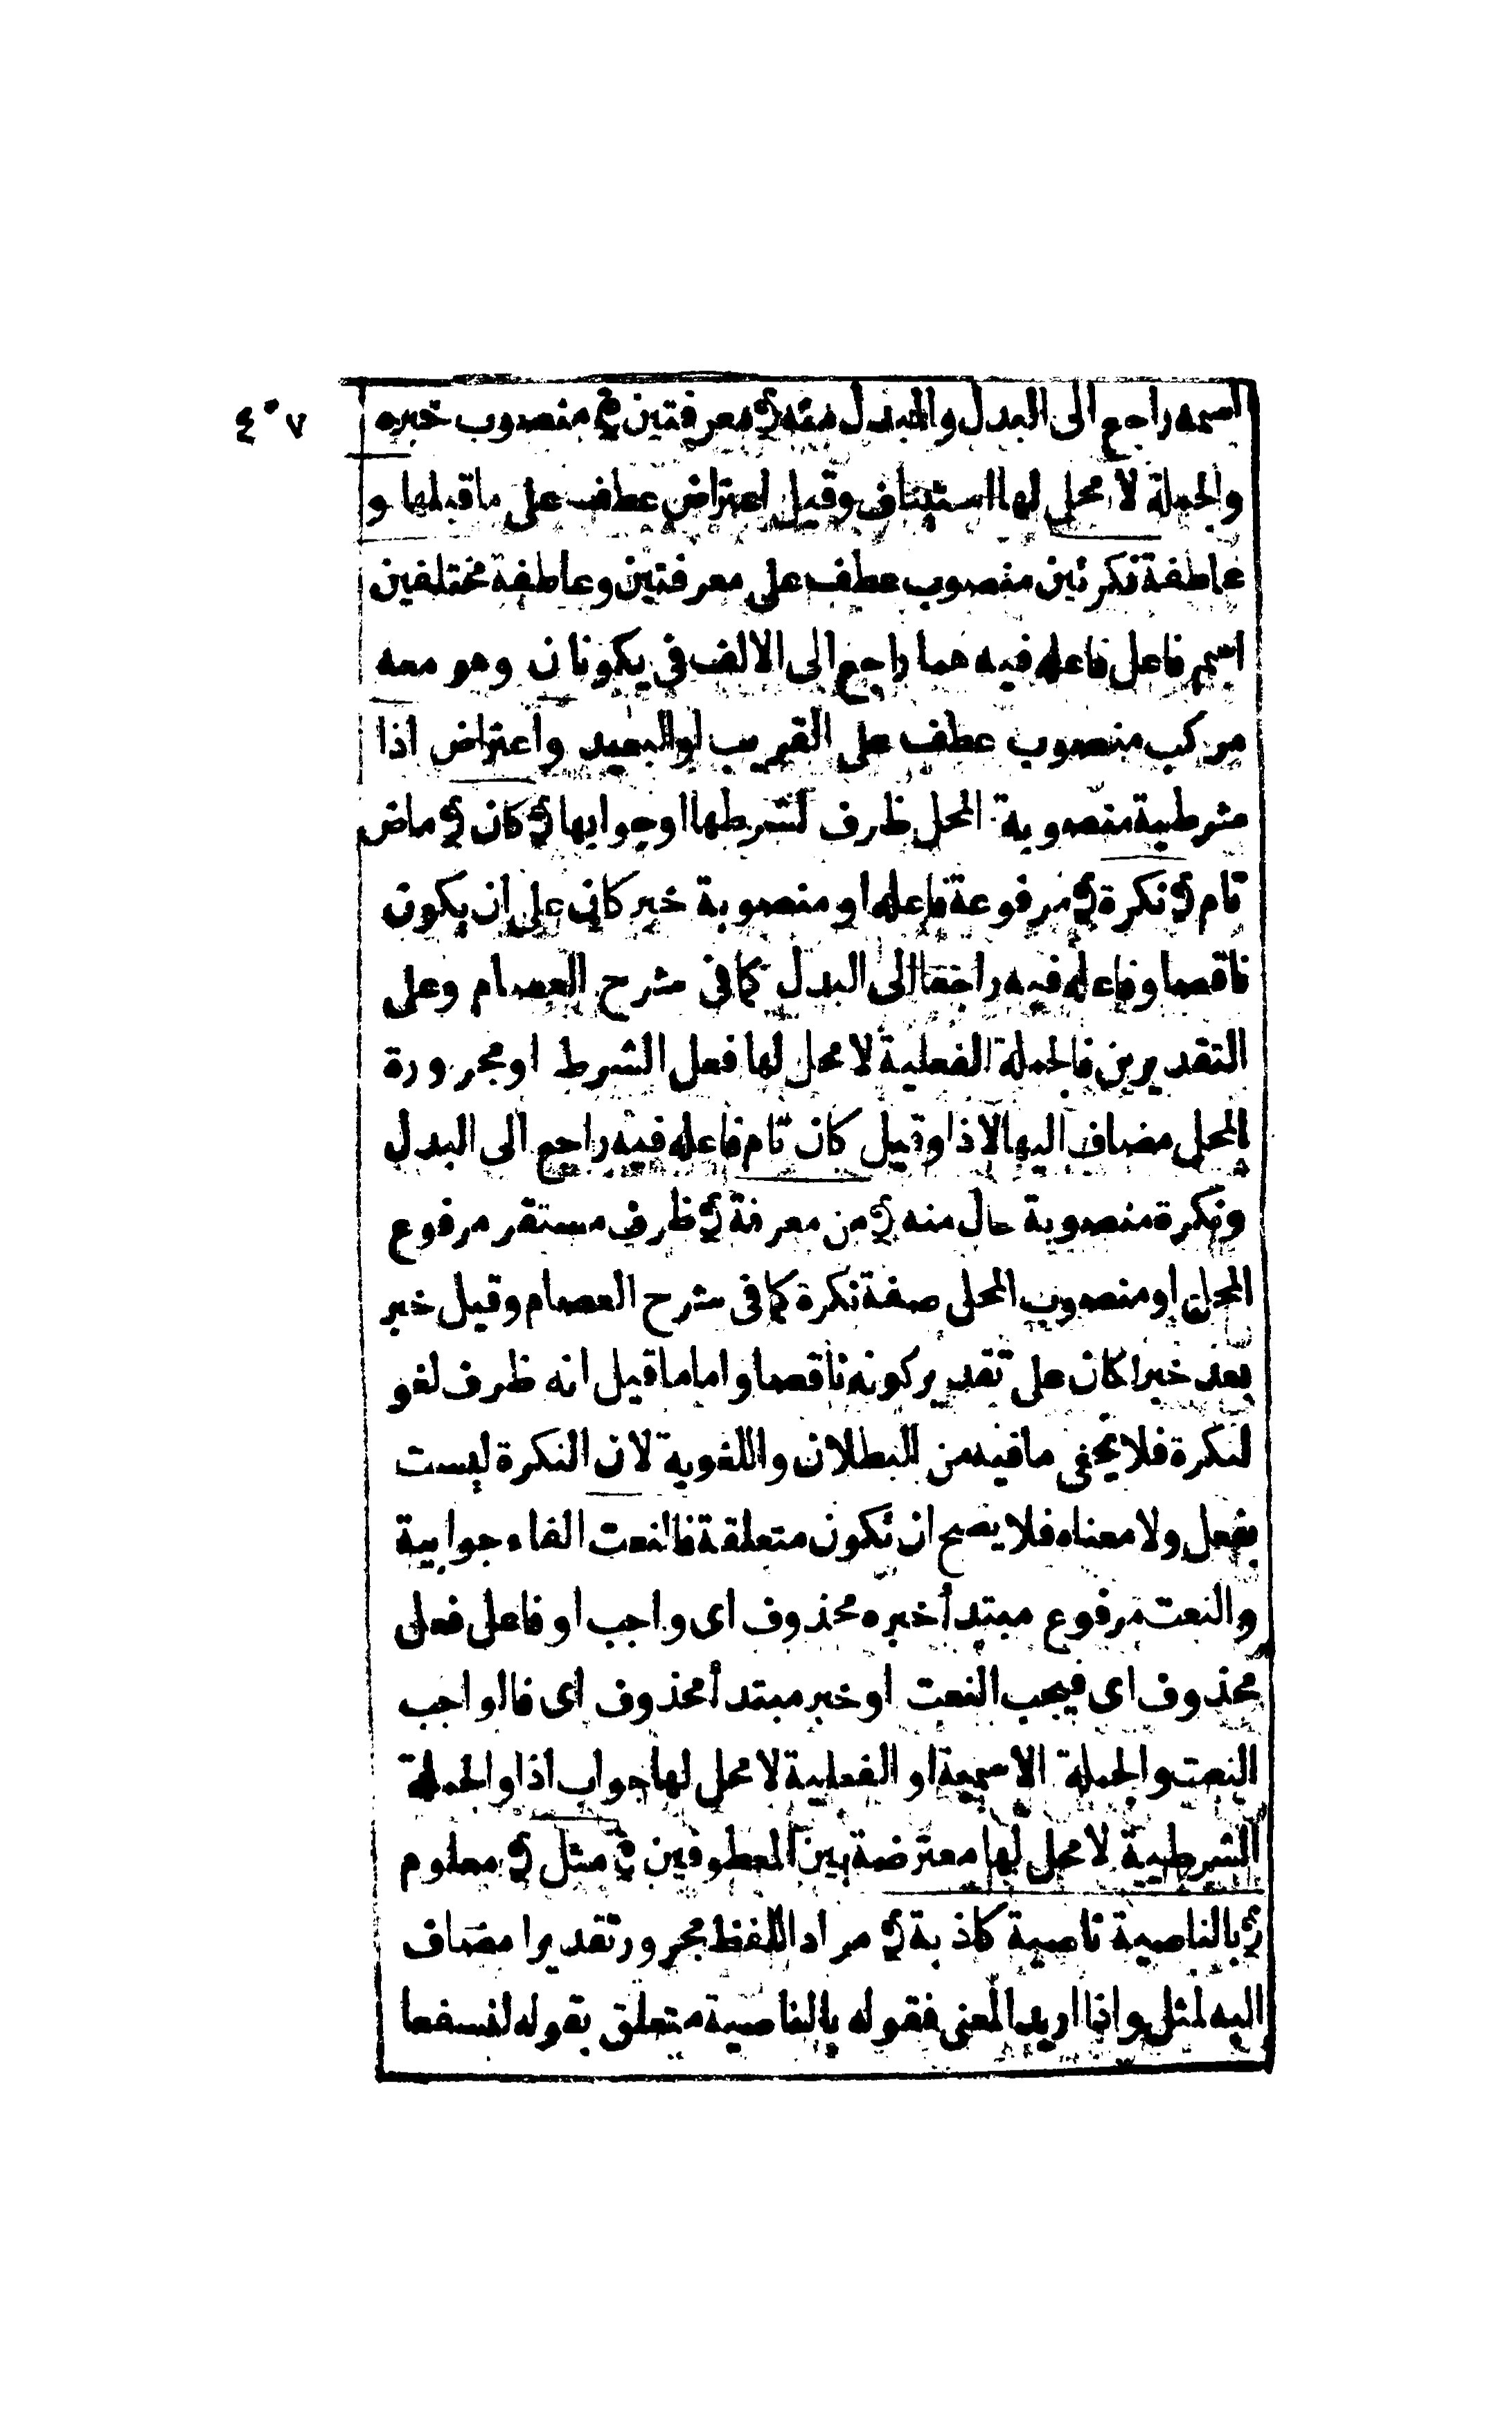 ٤٠٧
اسمه راجع الى البدل والمبدل منه ﴿ معرفتين ﴾ منصوب خبره
والجملة لا محل لها استيناف وقيل اعتراض عطف على ما قبلها و
عاطفة نكرتين منصوب عطف على معرفتين وعاطفة مختلفين
اسم فاعل فاعله فيه هما راجع الى الالف فى يكونان وهو معه
مركب منصوب عطف على القريب او البعيد واعتراض اذا
شرطية منصوبة المحل ظرف لشرطها او جوابها ﴿ كان ﴾ ماض
تام ﴿ نكرة ﴾ مرفوعة فاعله او منصوبة خبر كان على ان يكون
ناقصا وفاعله فيه راجعا الى البدل كما فى شرح العصام وعلى
التقديرين فالجملة الفعلية لا محل لها فعل الشرط او مجرورة
المحل مضاف اليها لاذا وقيل كان تام فاعله فيه راجع الى البدل
ونكرة منصوبة حال منه ﴿ من معرفة ﴾ ظرف مستقر مرفوع
المحل او منصوب المحل صفة نكرة كما فى شرح العصام وقيل خبر
بعد خبر لكان على تقدير كونه ناقصا واما ما قيل انه ظرف لغو
لنكرة فلا يخفى ما فيه من البطلان واللغوية لان النكرة ليست
بفعل ولا معناه فلا يصح ان تكون متعلقة فالنعت الفاء جوابية
والنعت مرفوع مبتدأ خبره محذوف اى واجب او فاعل فعل
محذوف اى فيجب النعت او خبر مبتدأ محذوف اى فالواجب
النعت والجملة الاسمية او الفعلية لا محل لها جواب اذا والجملة
الشرطية لا محل لها معترضة بين المعطوفين ﴿ مثل ﴾ معلوم
﴿ بالناصية ناصية كاذبة ﴾ مراد اللفظ مجرور تقديرا مضاف
اليه لمثل واذا اريد المعنى فقوله بالناصية متعلق بقوله لنسفعا